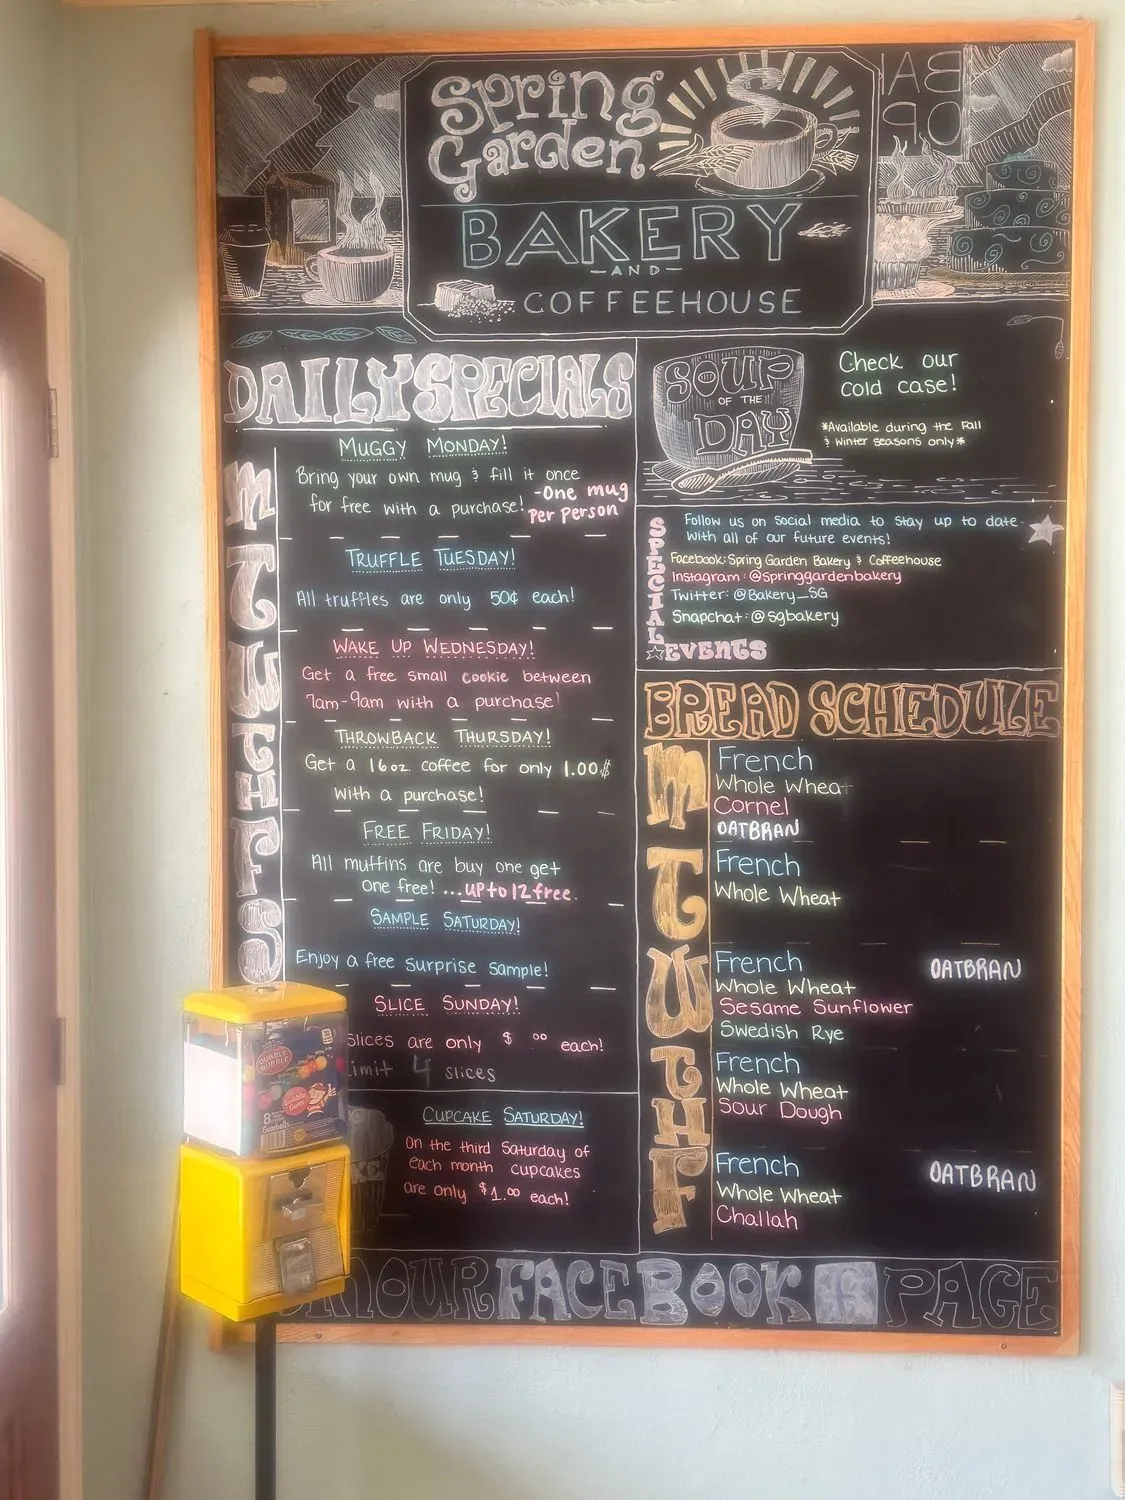 Spring
Garden
BAKERY
-AND-
COFFEEHOUSE
DAILY SPECIALS
M
T
W
TH
F
S
MUGGY MONDAY!
Bring your own mug & fill it once
for free with a purchase!
-One mug
per person
TRUFFLE TUESDAY!
All truffles are only 50¢ each!
WAKE UP WEDNESDAY!
Get a free small cookie between
7am-9am with a purchase!
THROWBACK THURSDAY!
Get a 16oz coffee for only 1.00$
with a purchase!
FREE FRIDAY!
All muffins are buy one get
one free! ...up to 12 free.
SAMPLE SATURDAY!
Enjoy a free surprise sample!
SLICE SUNDAY!
slices are only $ 00 each!
4 slices
CUPCAKE SATURDAY!
On the third Saturday of
each month cupcakes
are only $1.00 each!
SOUP
OF THE
DAY
Check our
cold case!
*Available during the Fall
& Winter seasons only*
SPECIAL
EVENTS
Follow us on social media to stay up to date
with all of our future events!
Facebook: Spring Garden Bakery & Coffeehouse
Instagram: @springgardenbakery
Twitter: @Bakery_SG
Snapchat: @sgbakery
BREAD SCHEDULE
M
French
Whole Wheat
Cornel
OATBRAN
T
French
Whole Wheat
W
French OATBRAN
Whole Wheat
Sesame Sunflower
Swedish Rye
TH
French
Whole Wheat
Sour Dough
F
French OATBRAN
Whole Wheat
Challah
OUR FACEBOOK f PAGE
DUBBLE
BUBBLE
Bubble
Gum
8
Gumballs